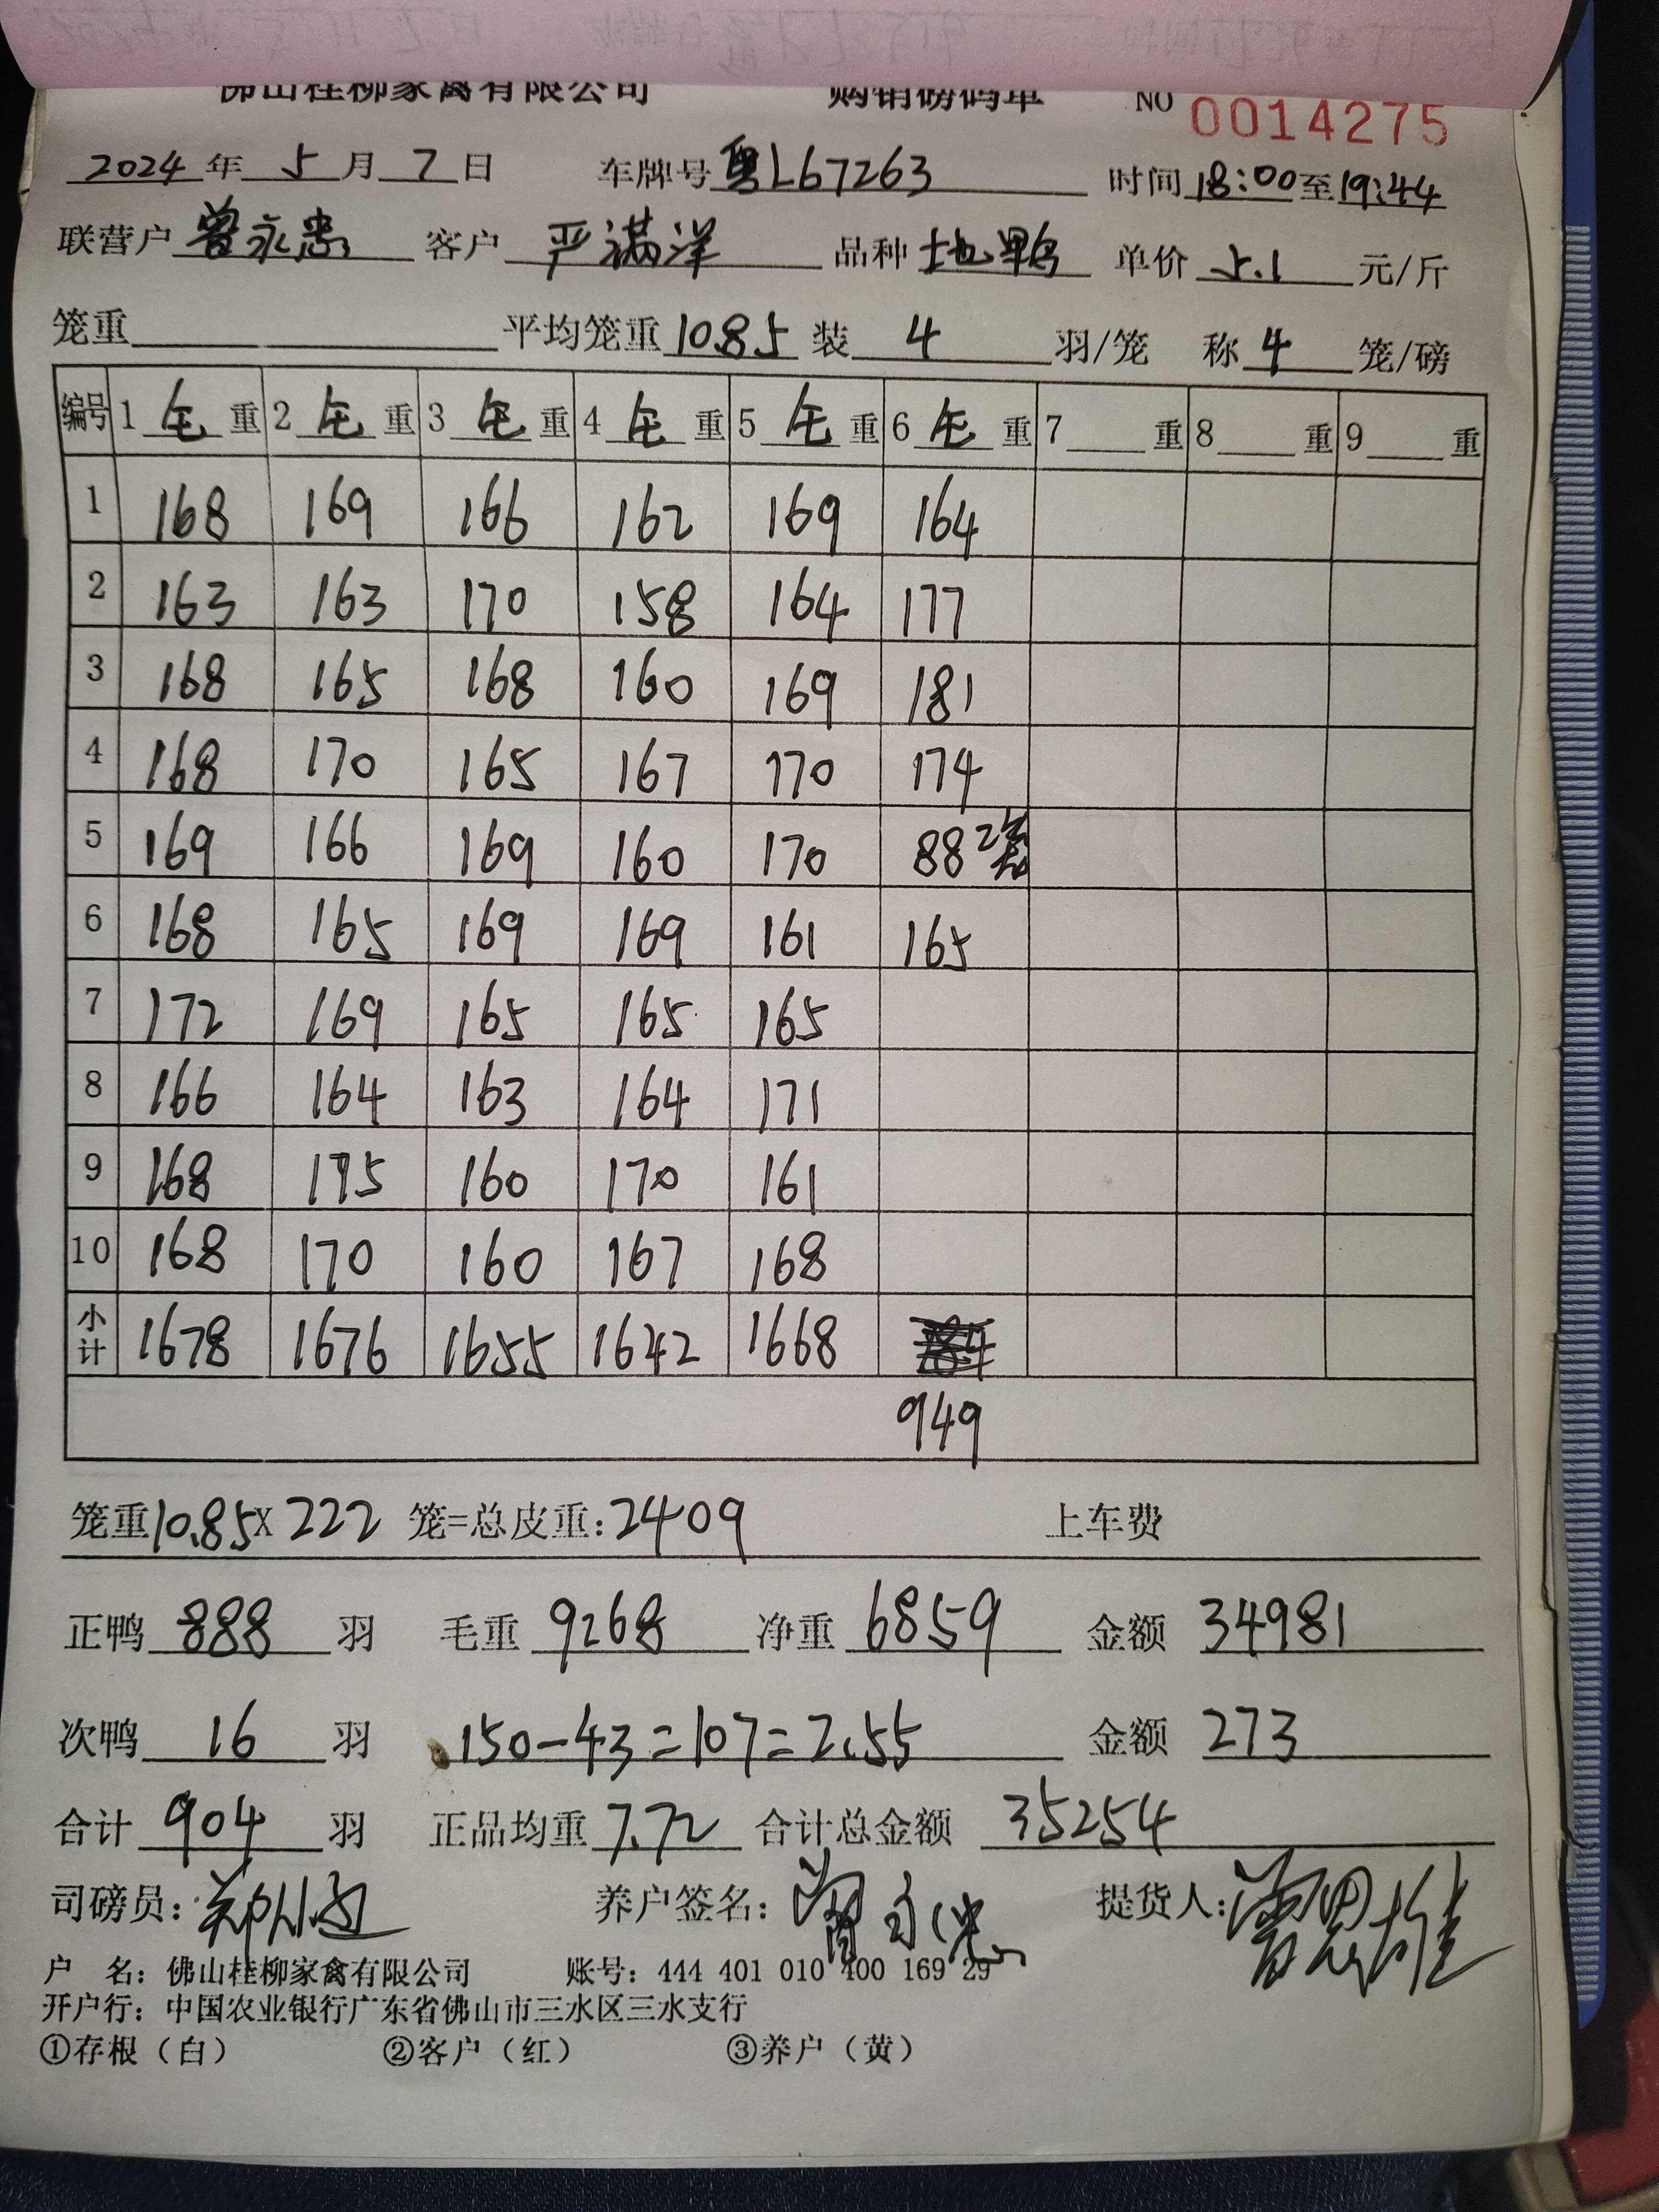 佛山桂柳家禽有限公司 购销磅码单 NO 0014275
2024年 5月 7日 车牌号 粤L67263 时间 18:00至19:44
联营户 曾永忠 客户 严满洋 品种 土鸭 单价 5.1 元/斤
笼重 平均笼重 10.85 装 4 羽/笼 称 4 笼/磅
编号 1 毛 重 2 毛 重 3 毛 重 4 毛 重 5 毛 重 6 毛 重 7 重 8 重 9 重
1 168 169 166 162 169 164
2 163 163 170 158 164 177
3 168 165 168 160 169 181
4 168 170 165 167 170 174
5 169 166 169 160 170 88 2笼
6 168 165 169 169 161 165
7 172 169 165 165 165
8 166 164 163 164 171
9 168 175 160 170 161
10 168 170 160 167 168
小计 1678 1676 1655 1642 1668
949
笼重10.85X 222 笼=总皮重:2409 上车费
正鸭 888 羽 毛重 9268 净重 6859 金额 34981
次鸭 16 羽 150-43=107=2.55 金额 273
合计 904 羽 正品均重 7.72 合计总金额 35254
司磅员: 养户签名: 曾永忠 提货人:
户 名: 佛山桂柳家禽有限公司 账号: 444 401 010 400 169 29
开户行: 中国农业银行广东省佛山市三水区三水支行
①存根（白） ②客户（红） ③养户（黄）